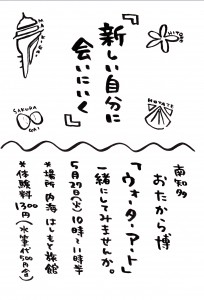 『新しい自分に
会いにいく』
MAKIGAI
HITODE
SAKURA
GAI
HOTATE
南知多
おたから博
「ウォーターアート」
一緒にしてみませんか。
5月27日(火)10時〜11時半
*場所 内海 はしもと旅館
*体験料 1300円(氷箸代500円含)